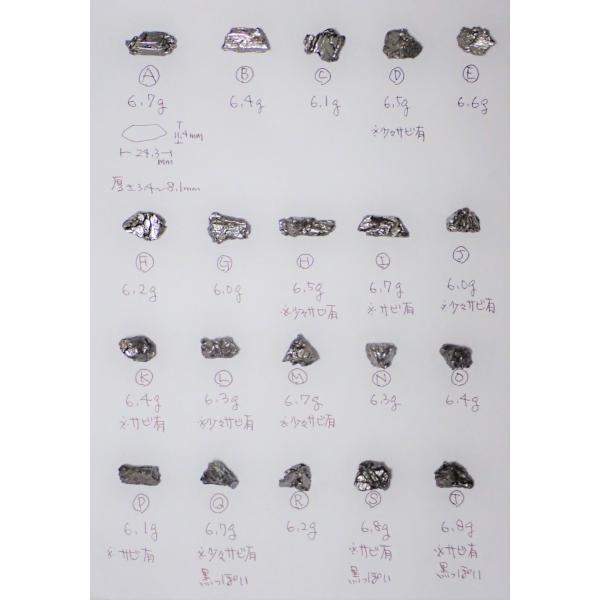 A B C D E
6.7g 6.4g 6.1g 6.5g 6.6g
※少々サビ有
11.4mm
24.3mm
厚さ3.4〜8.1mm
F G H I J
6.2g 6.0g 6.5g 6.7g 6.0g
※少々サビ有 ※サビ有 ※少々サビ有
K L M N O
6.4g 6.3g 6.7g 6.3g 6.4g
※サビ有 ※少々サビ有 ※少々サビ有
P Q R S T
6.1g 6.7g 6.2g 6.8g 6.8g
※サビ有 ※少々サビ有 ※サビ有 ※サビ有
黒っぽい 黒っぽい 黒っぽい